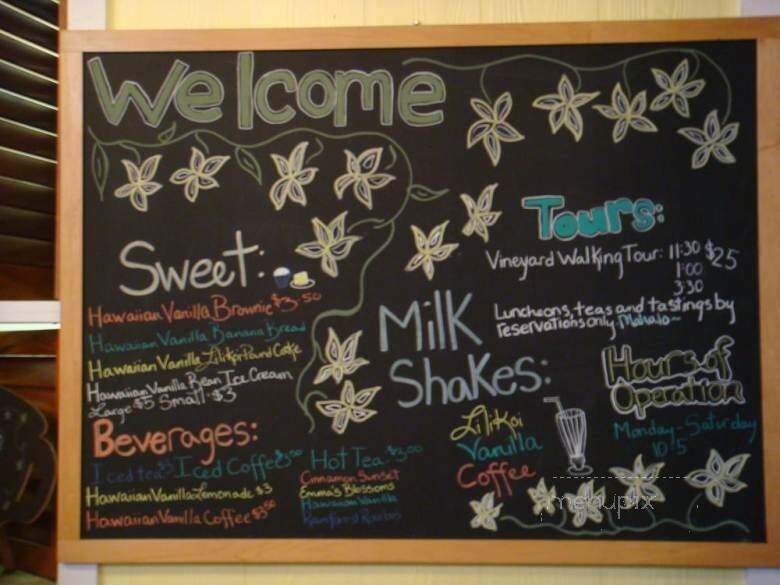 Welcome
Sweet:
Hawaiian Vanilla Brownie $3.50
Hawaiian Vanilla Banana Bread
Hawaiian Vanilla Lilikoi Pound Cake
Hawaiian Vanilla Bean Ice Cream
Large $5 Small $3
Beverages:
Iced tea $3 Iced Coffee
Hawaiian Vanilla Lemonade $3
Hawaiian Vanilla Coffee $3.50
Hot Tea $3.00
Cinnamon Sunset
Emma's Blossoms
Hawaiian Vanilla
Rainforest Rooibos
Milk
Shakes:
Lilikoi
Vanilla
Coffee
Tours:
Vineyard Walking Tour: 11:30 $25
1:00
3:30
Luncheons, teas and tastings by
reservations only. Mahalo~
Hours of
Operation
Monday-Saturday
10-5
menupix